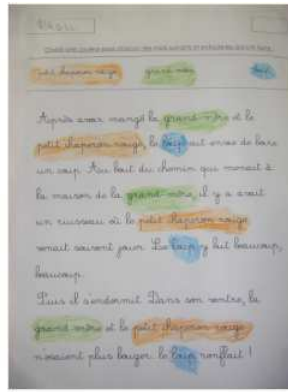 petit chaperon rouge grand-mère loup
Après avoir mangé la grand-mère et le
petit chaperon rouge, le loup eut envie de boire
un coup. Au bout du chemin qui menait à
la maison de la grand-mère, il y avait
un ruisseau où le petit chaperon rouge
venait souvent jouer. Le loup y but beaucoup,
beaucoup.
Puis il s'endormit. Dans son ventre, la
grand-mère et le petit chaperon rouge
n'osaient plus bouger. Le loup ronflait !